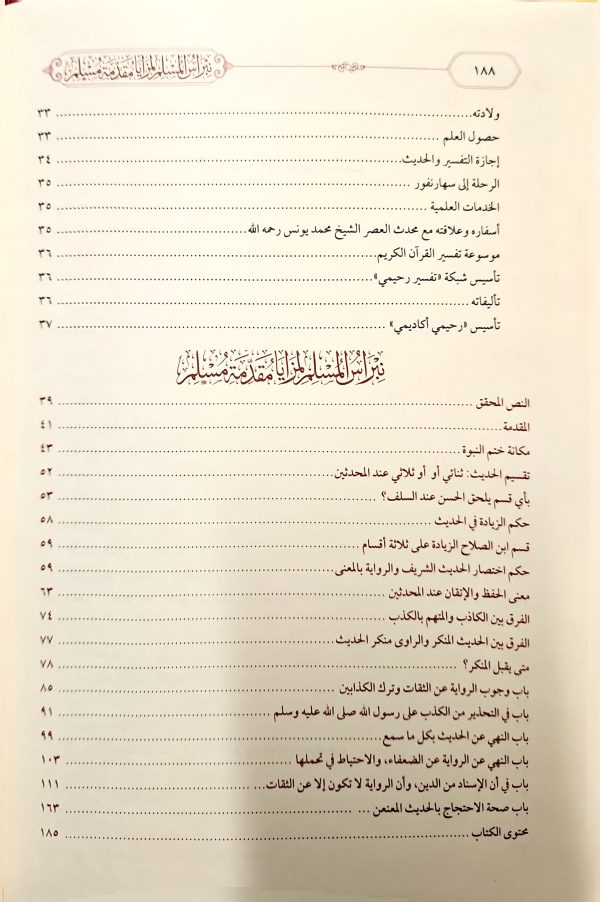 ١٨٨ نبراس المسلم لمزايا مقدمة مسلم
ولادته ٣٣
حصول العلم ٣٣
إجازة التفسير والحديث ٣٤
الرحلة إلى سهارنفور ٣٥
الخدمات العلمية ٣٥
أسفاره وعلاقته مع محدث العصر الشيخ محمد يونس رحمه الله ٣٥
موسوعة تفسير القرآن الكريم ٣٦
تأسيس شبكة «تفسير رحيمي» ٣٦
تأليفاته ٣٦
تأسيس «رحيمي أكاديمي» ٣٧
نِبْرَاسُ المُسْلِمِ لِمَزَايَا مُقَدِّمَةِ مُسْلِمٍ
النص المحقق ٣٩
المقدمة ٤١
مكانة ختم النبوة ٤٣
تقسيم الحديث: ثنائي أو أو ثلاثي عند المحدثين ٥٢
بأي قسم يلحق الحسن عند السلف؟ ٥٣
حكم الزيادة في الحديث ٥٨
قسم ابن الصلاح الزيادة على ثلاثة أقسام ٥٩
حكم اختصار الحديث الشريف والرواية بالمعنى ٥٩
معنى الحفظ والإتقان عند المحدثين ٦٣
الفرق بين الكاذب والمتهم بالكذب ٧٤
الفرق بين الحديث المنكر والراوى منكر الحديث ٧٧
متى يقبل المنكر؟ ٧٨
باب وجوب الرواية عن الثقات وترك الكذابين ٨٥
باب في التحذير من الكذب على رسول الله صلى الله عليه وسلم ٩١
باب النهي عن الحديث بكل ما سمع ٩٩
باب النهي عن الرواية عن الضعفاء، والاحتياط في تحملها ١٠٣
باب في أن الإسناد من الدين، وأن الرواية لا تكون إلا عن الثقات ١١١
باب صحة الاحتجاج بالحديث المعنعن ١٦٣
محتوى الكتاب ١٨٥